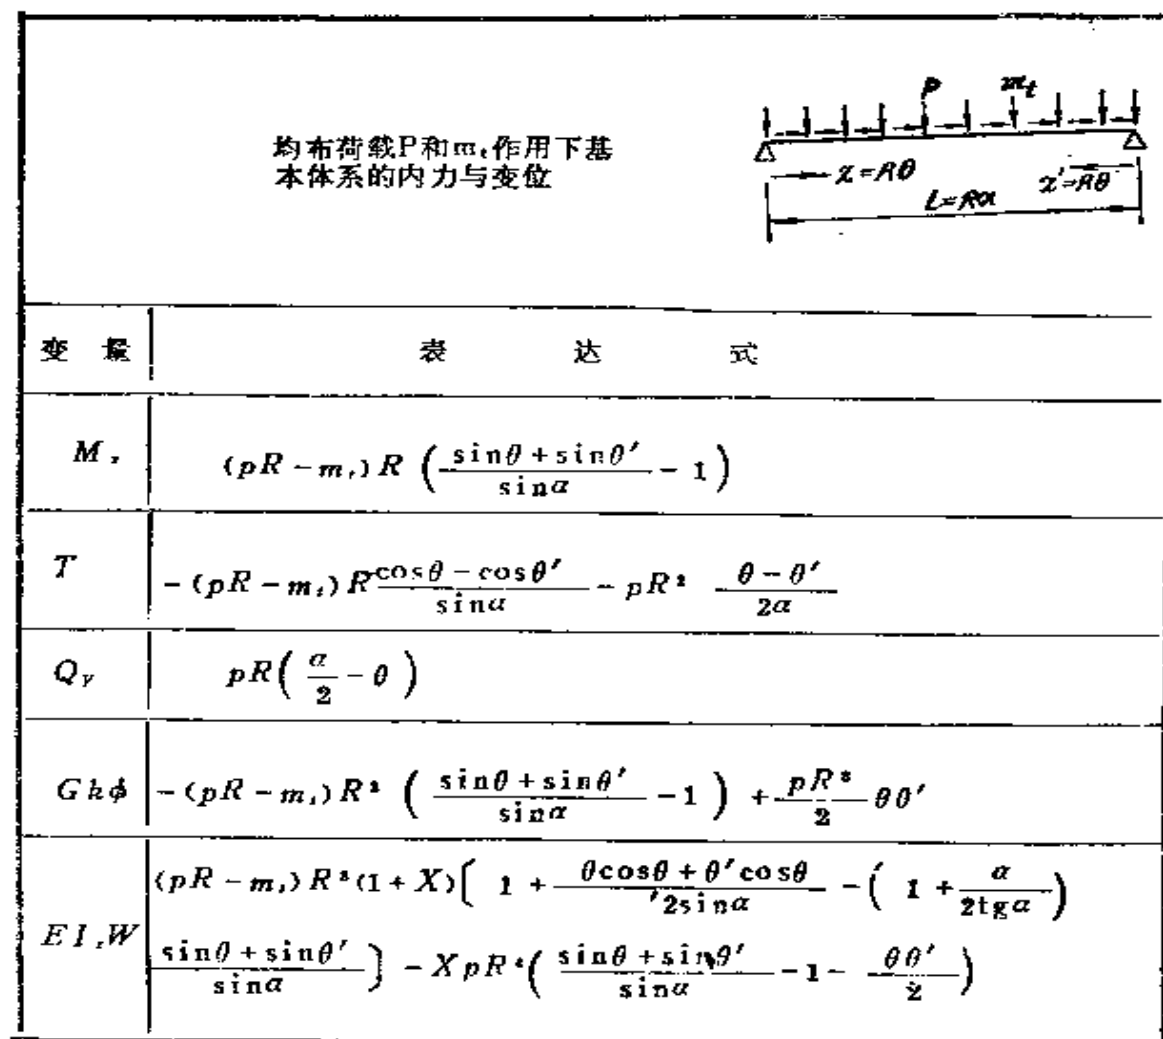 均布荷载P和mₜ作用下基
本体系的内力与变位
P mₜ
z=Rθ
z'=Rθ
L=Rα
变 量 表 达 式
Mₓ (pR-mₜ)R(\frac{sinθ+sinθ′}{sinα}-1)
T -(pR-mₜ)R\frac{cosθ-cosθ′}{sinα}-pR²\frac{θ-θ′}{2α}
Q_y pR(\frac{α}{2}-θ)
Gkϕ -(pR-mₜ)R²(\frac{sinθ+sinθ′}{sinα}-1)+\frac{pR³}{2}θθ′
EIₓW (pR-mₜ)R³(1+X)[1+\frac{θcosθ+θ′cosθ}{′2sinα}-(1+\frac{α}{2tgα})
\frac{sinθ+sinθ′}{sinα}]-XpR⁴(\frac{sinθ+sinθ′}{sinα}-1-\frac{θθ′}{2})